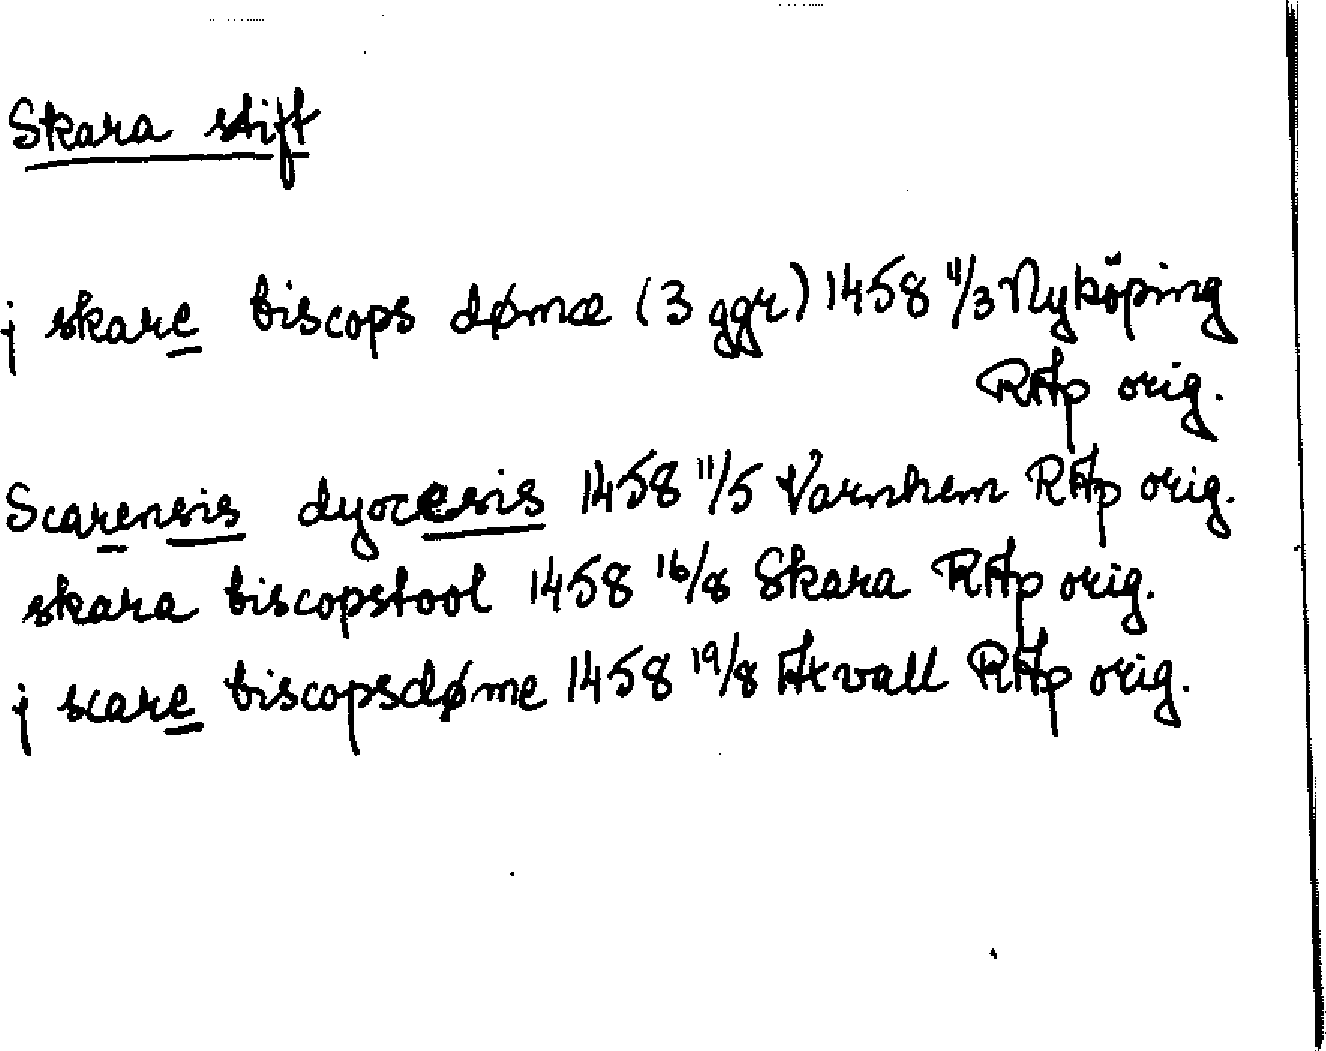 Skara stift
j skare biscops dømæ (3 ggr) 1458 11/3 Nyköping
RAp orig.
Scarensis dyocesis 1458 11/5 Varnhem RAp orig.
skara biscopstool 1458 16/8 Skara RAp orig.
j scare biscopsdøme 1458 19/8 Axvall RAp orig.